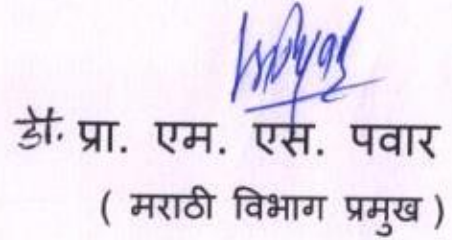 डॉ. प्रा. एम. एस. पवार
( मराठी विभाग प्रमुख )